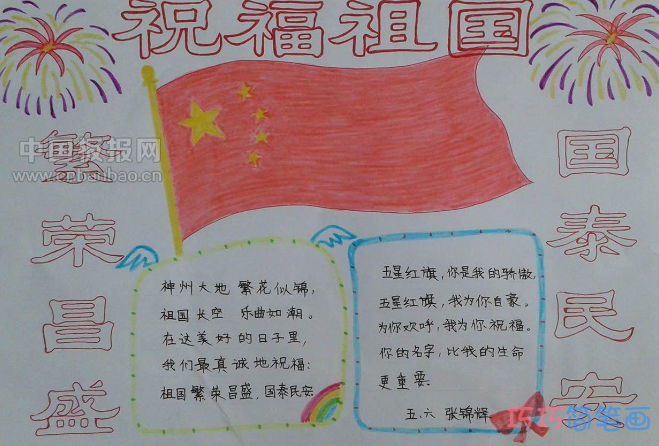 祝福祖国
中国板报网
www.banbao.cn
繁荣昌盛
国泰民安
神州大地 繁花似锦,
祖国长空 乐曲如潮。
在这美好的日子里,
我们最真诚地祝福:
祖国繁荣昌盛,国泰民安
五星红旗,你是我的骄傲,
五星红旗,我为你自豪。
为你欢呼,我为你祝福。
你的名字,比我的生命
更重要.
五.六 张锦辉
巧巧简笔画